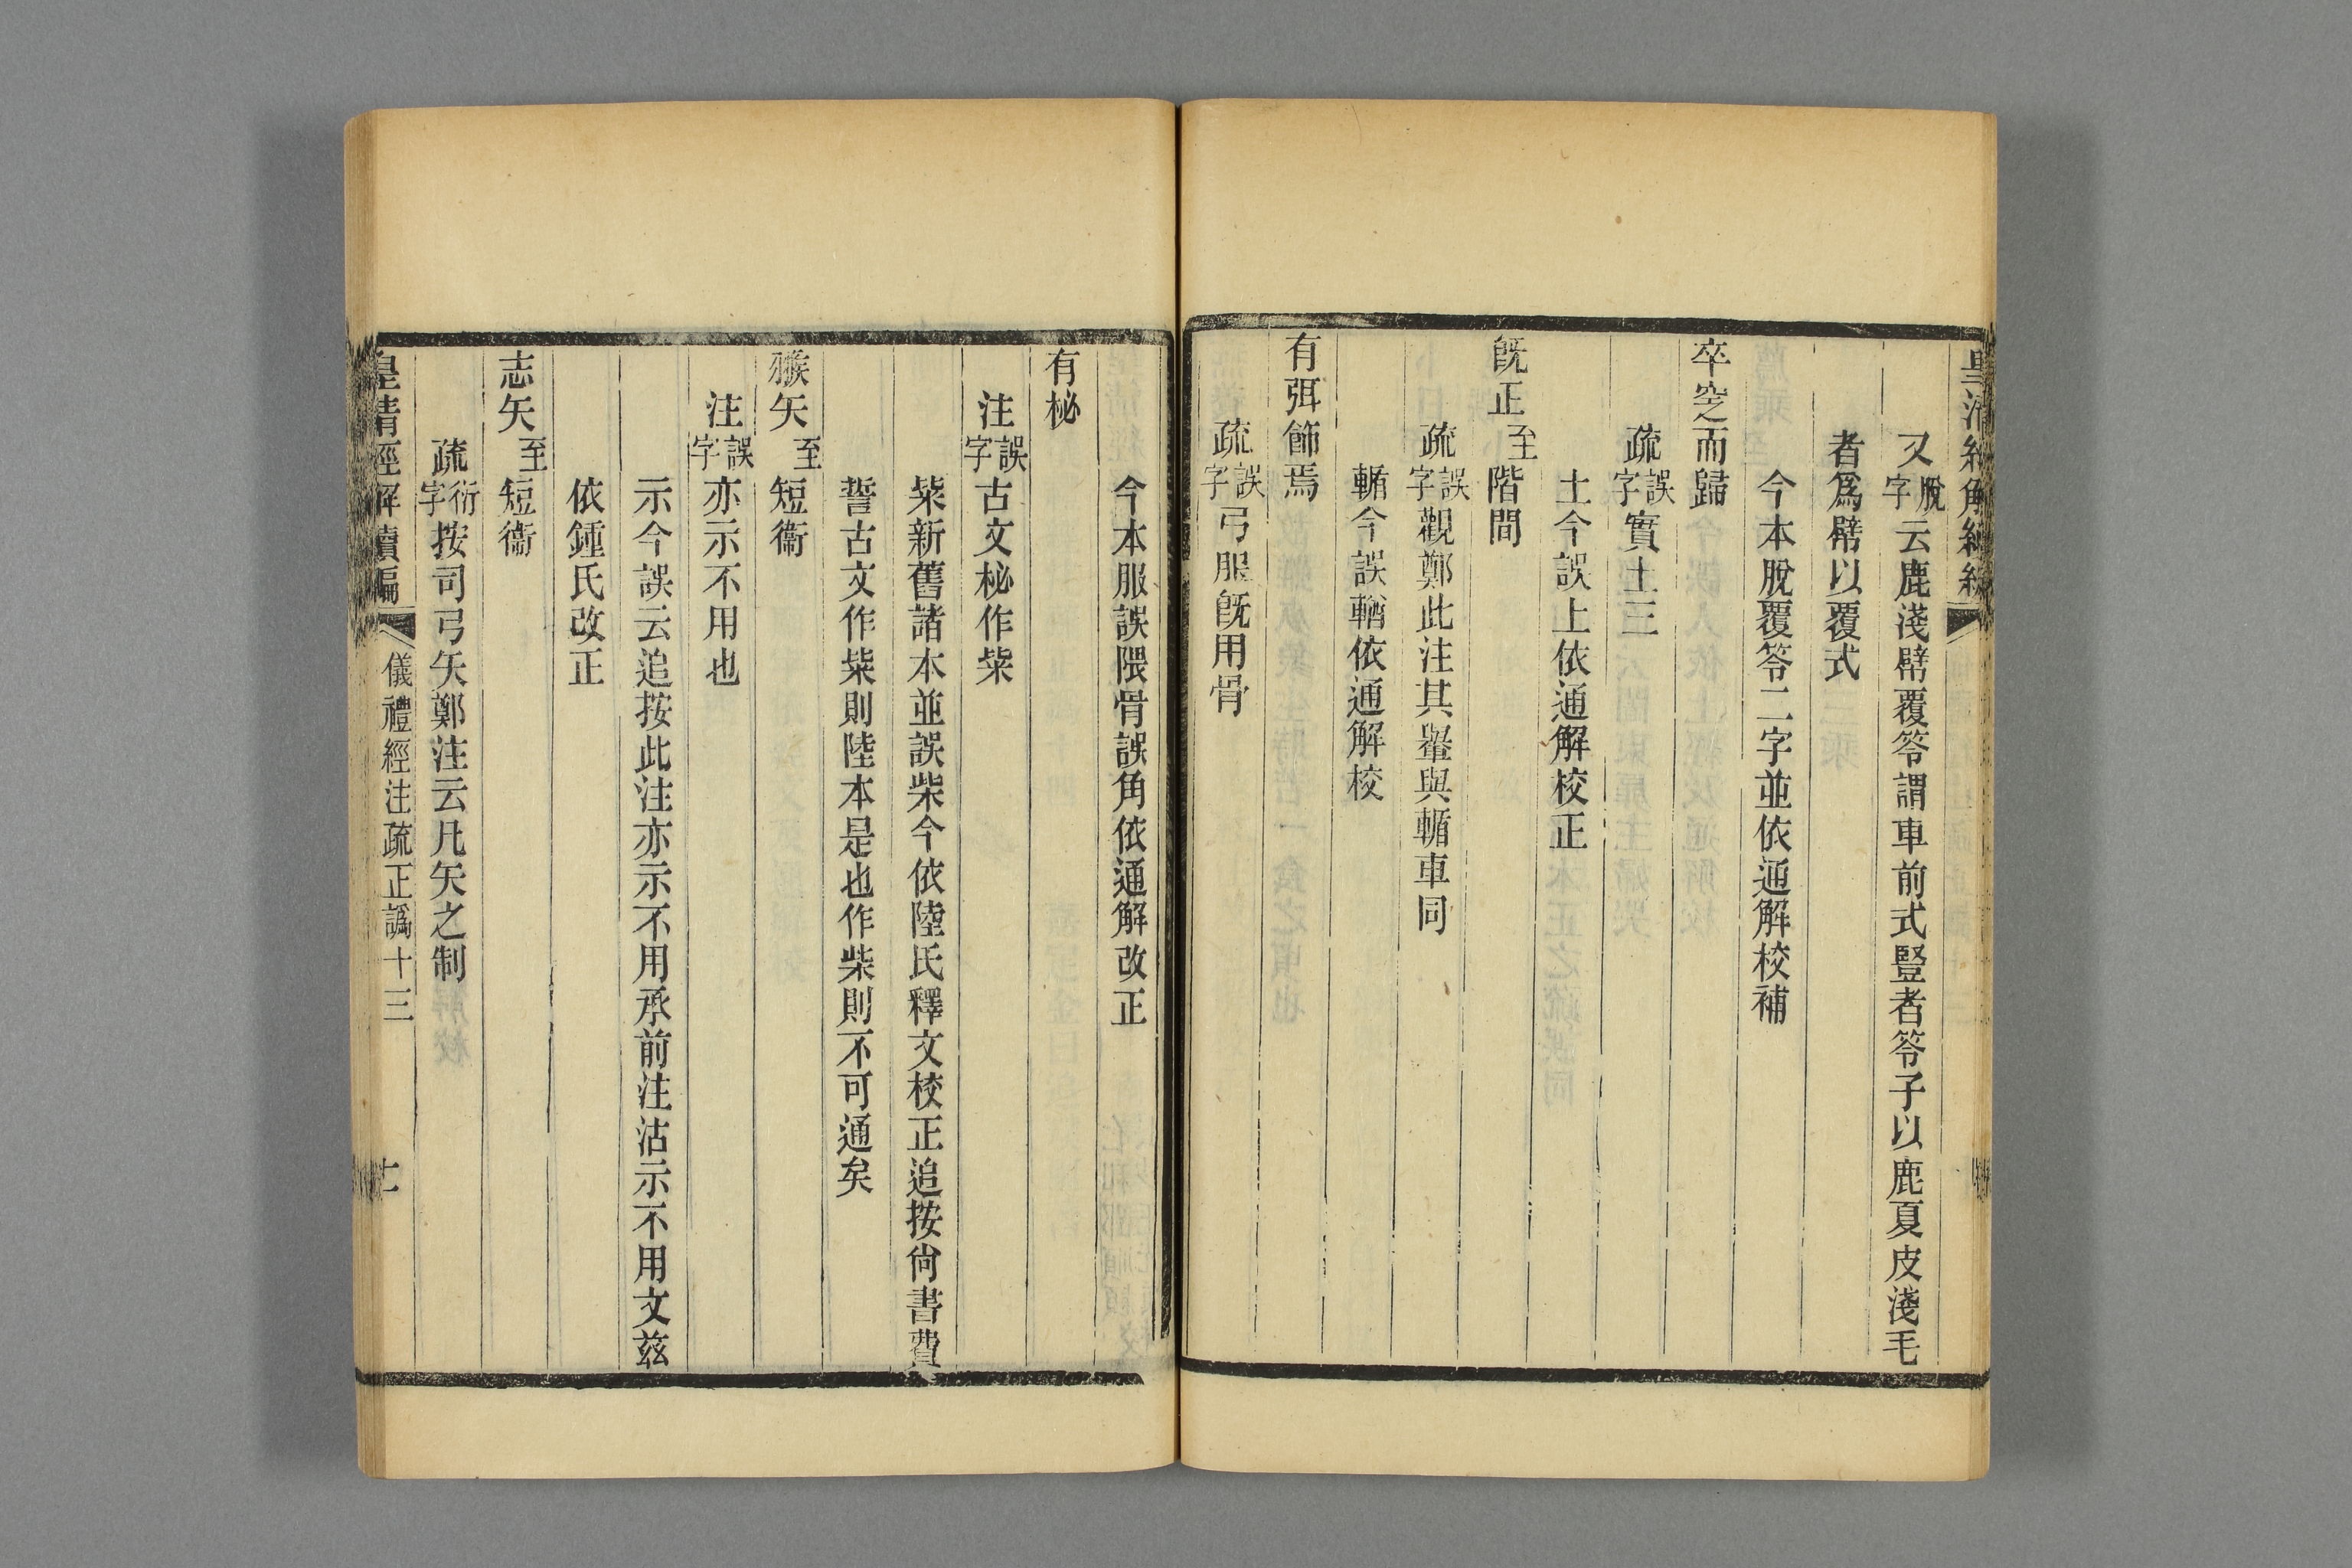 又脫字云鹿淺幦覆笭謂車前式豎者笭子以鹿夏皮淺毛
者爲幦以覆式
今本脫覆笭二字並依通解校補
卒窆而歸
疏誤字實土三
土今誤上依通解校正
既正至階間
疏誤字觀鄭此注其輂與輴車同
輴今誤輶依通解校
有弭飾焉
疏誤字弓服既用骨
今本服誤隈骨誤角依通解改正
有柲
注誤字古文柲作枈
枈新舊諸本並誤柴今依陸氏釋文校正追按尙書費
誓古文作枈則陸本是也作柴則不可通矣
猴矢至短衞
注誤字亦示不用也
示今誤云追按此注亦示不用承前注沽示不用文茲
依鍾氏改正
志矢至短衞
疏衍字按司弓矢鄭注云凡矢之制
皇清經解續編
儀禮經注疏正譌十三